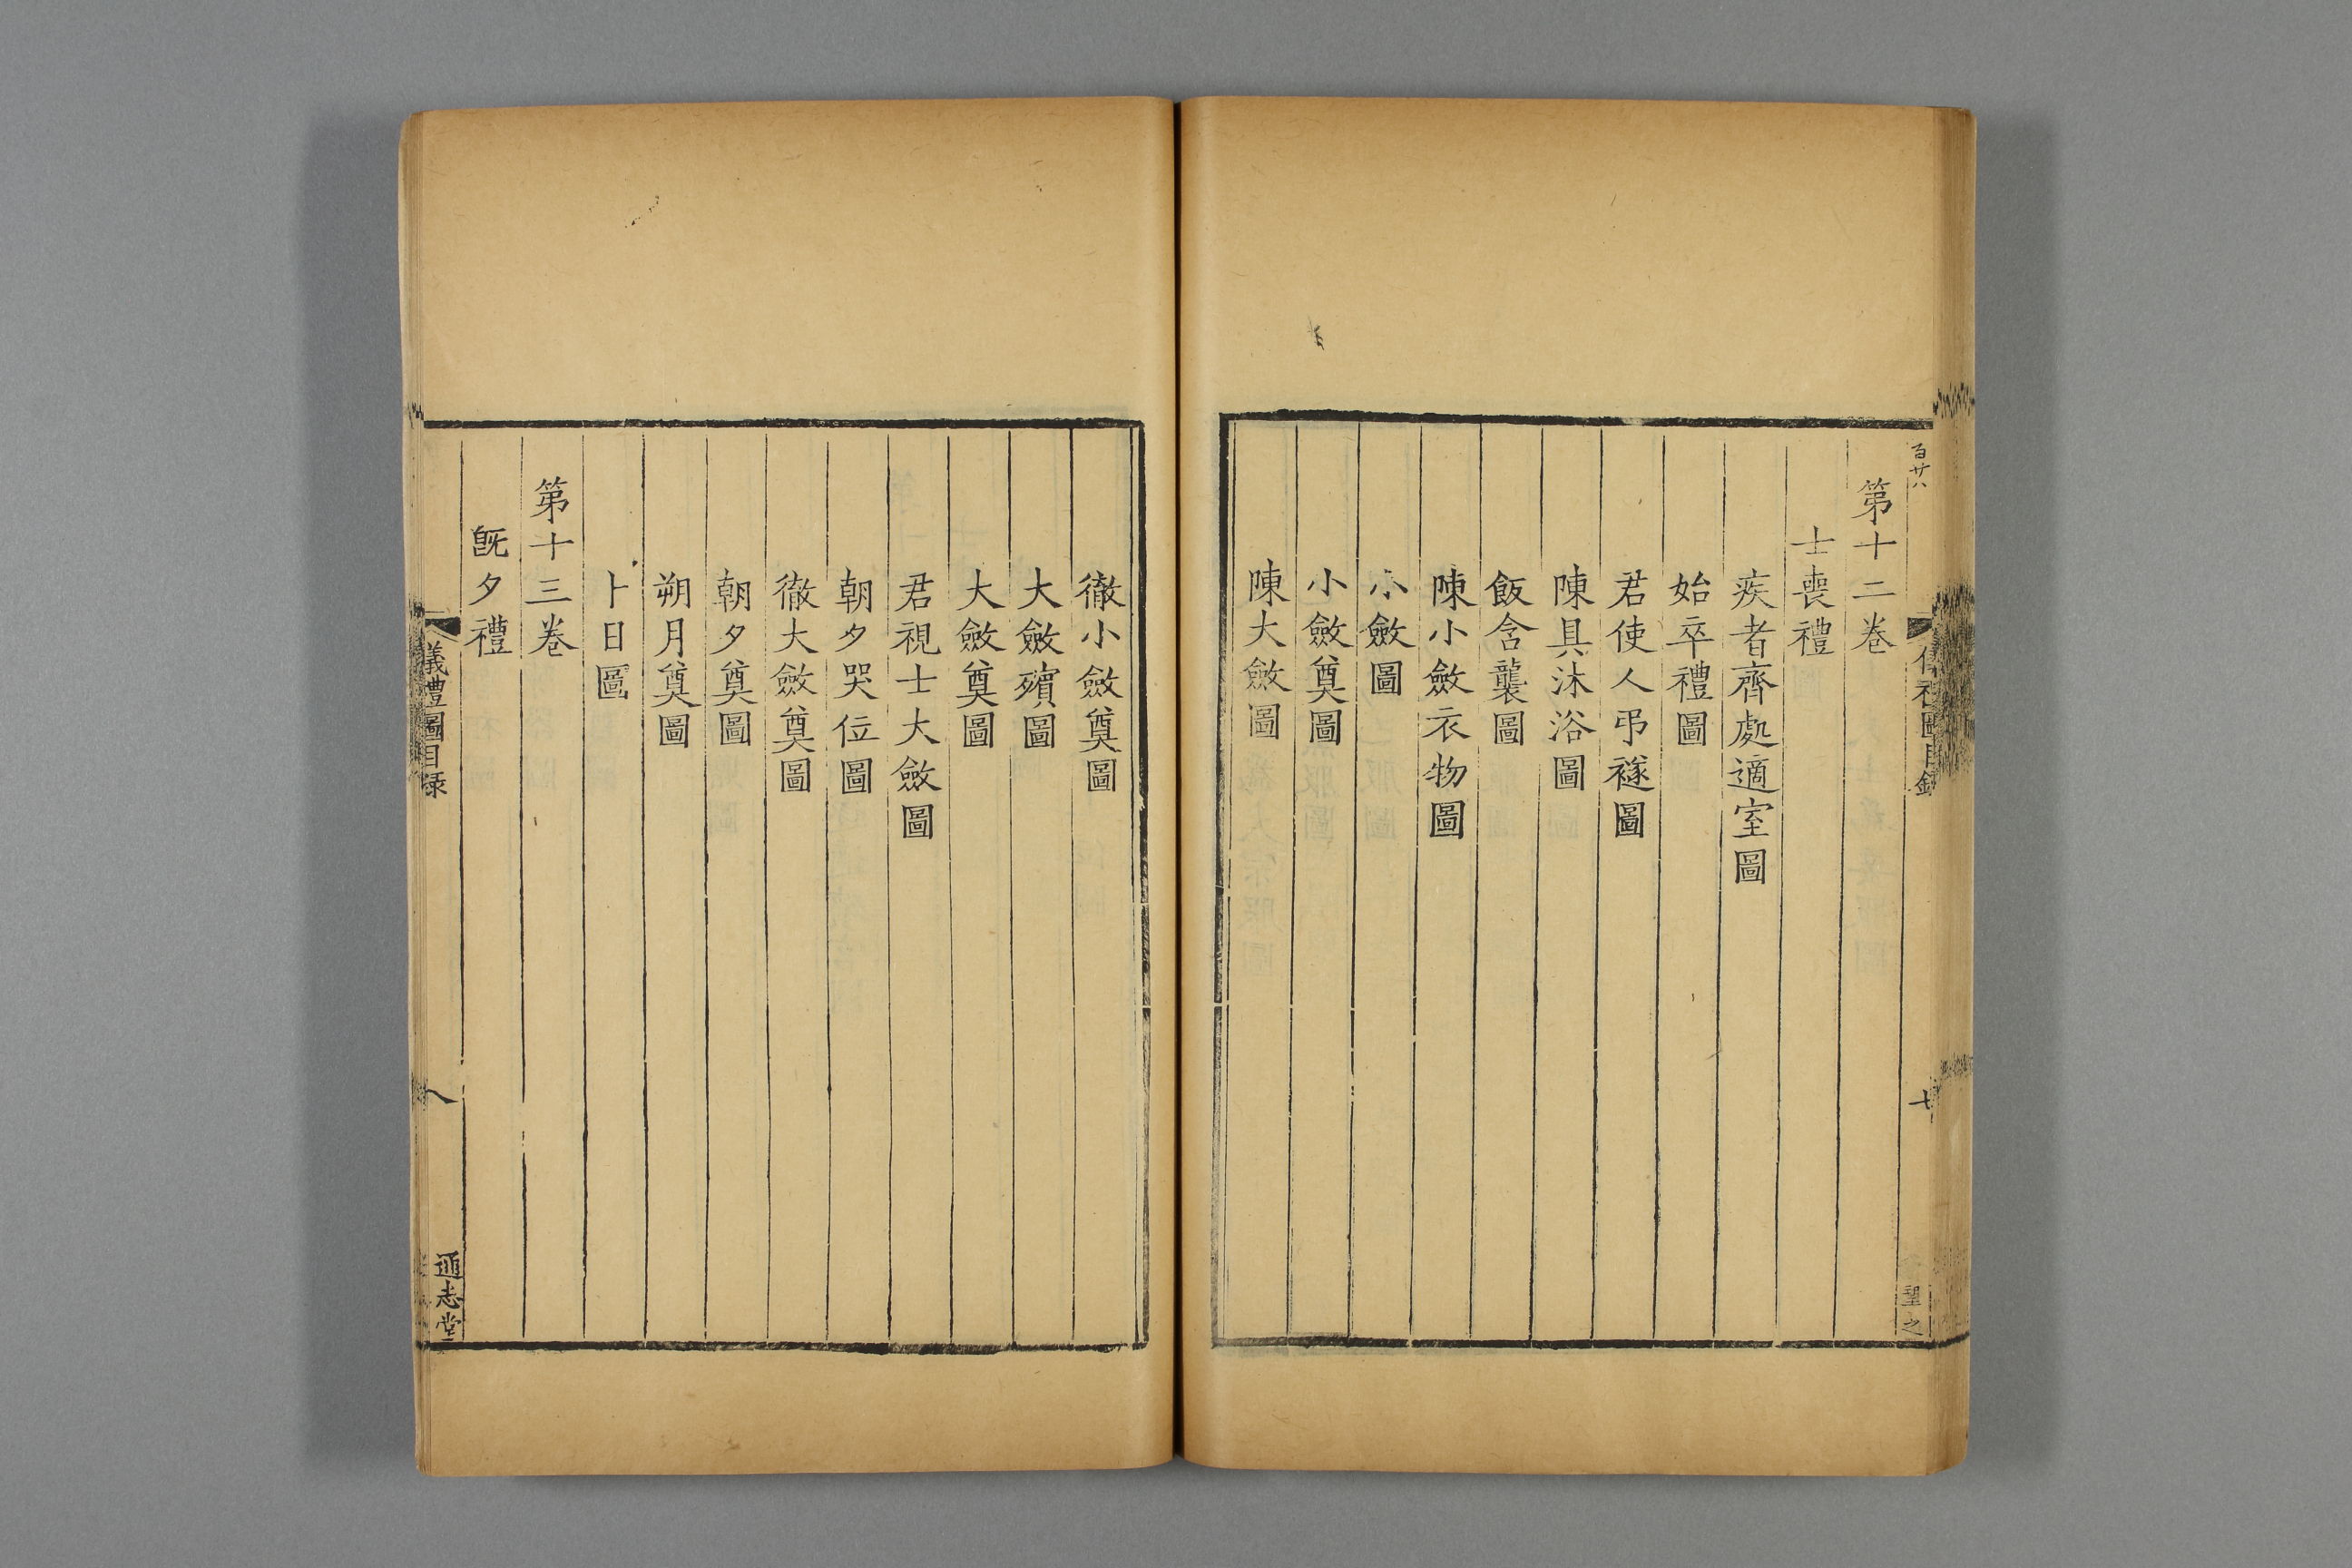 百廿八
儀禮圖目錄
七
望之
第十二卷
士喪禮
疾者齊處適室圖
始卒禮圖
君使人弔襚圖
陳具沐浴圖
飯含襲圖
陳小斂衣物圖
小斂圖
小斂奠圖
陳大斂圖
徹小斂奠圖
大斂殯圖
大斂奠圖
君視士大斂圖
朝夕哭位圖
徹大斂奠圖
朝夕奠圖
朔月奠圖
卜日圖
第十三卷
旣夕禮
儀禮圖目錄
八
通志堂